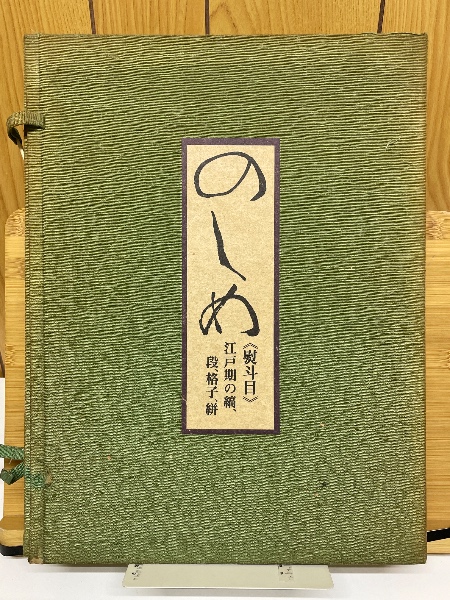 のしめ
《熨斗目》
江戸期の縞、
段、格子、絣